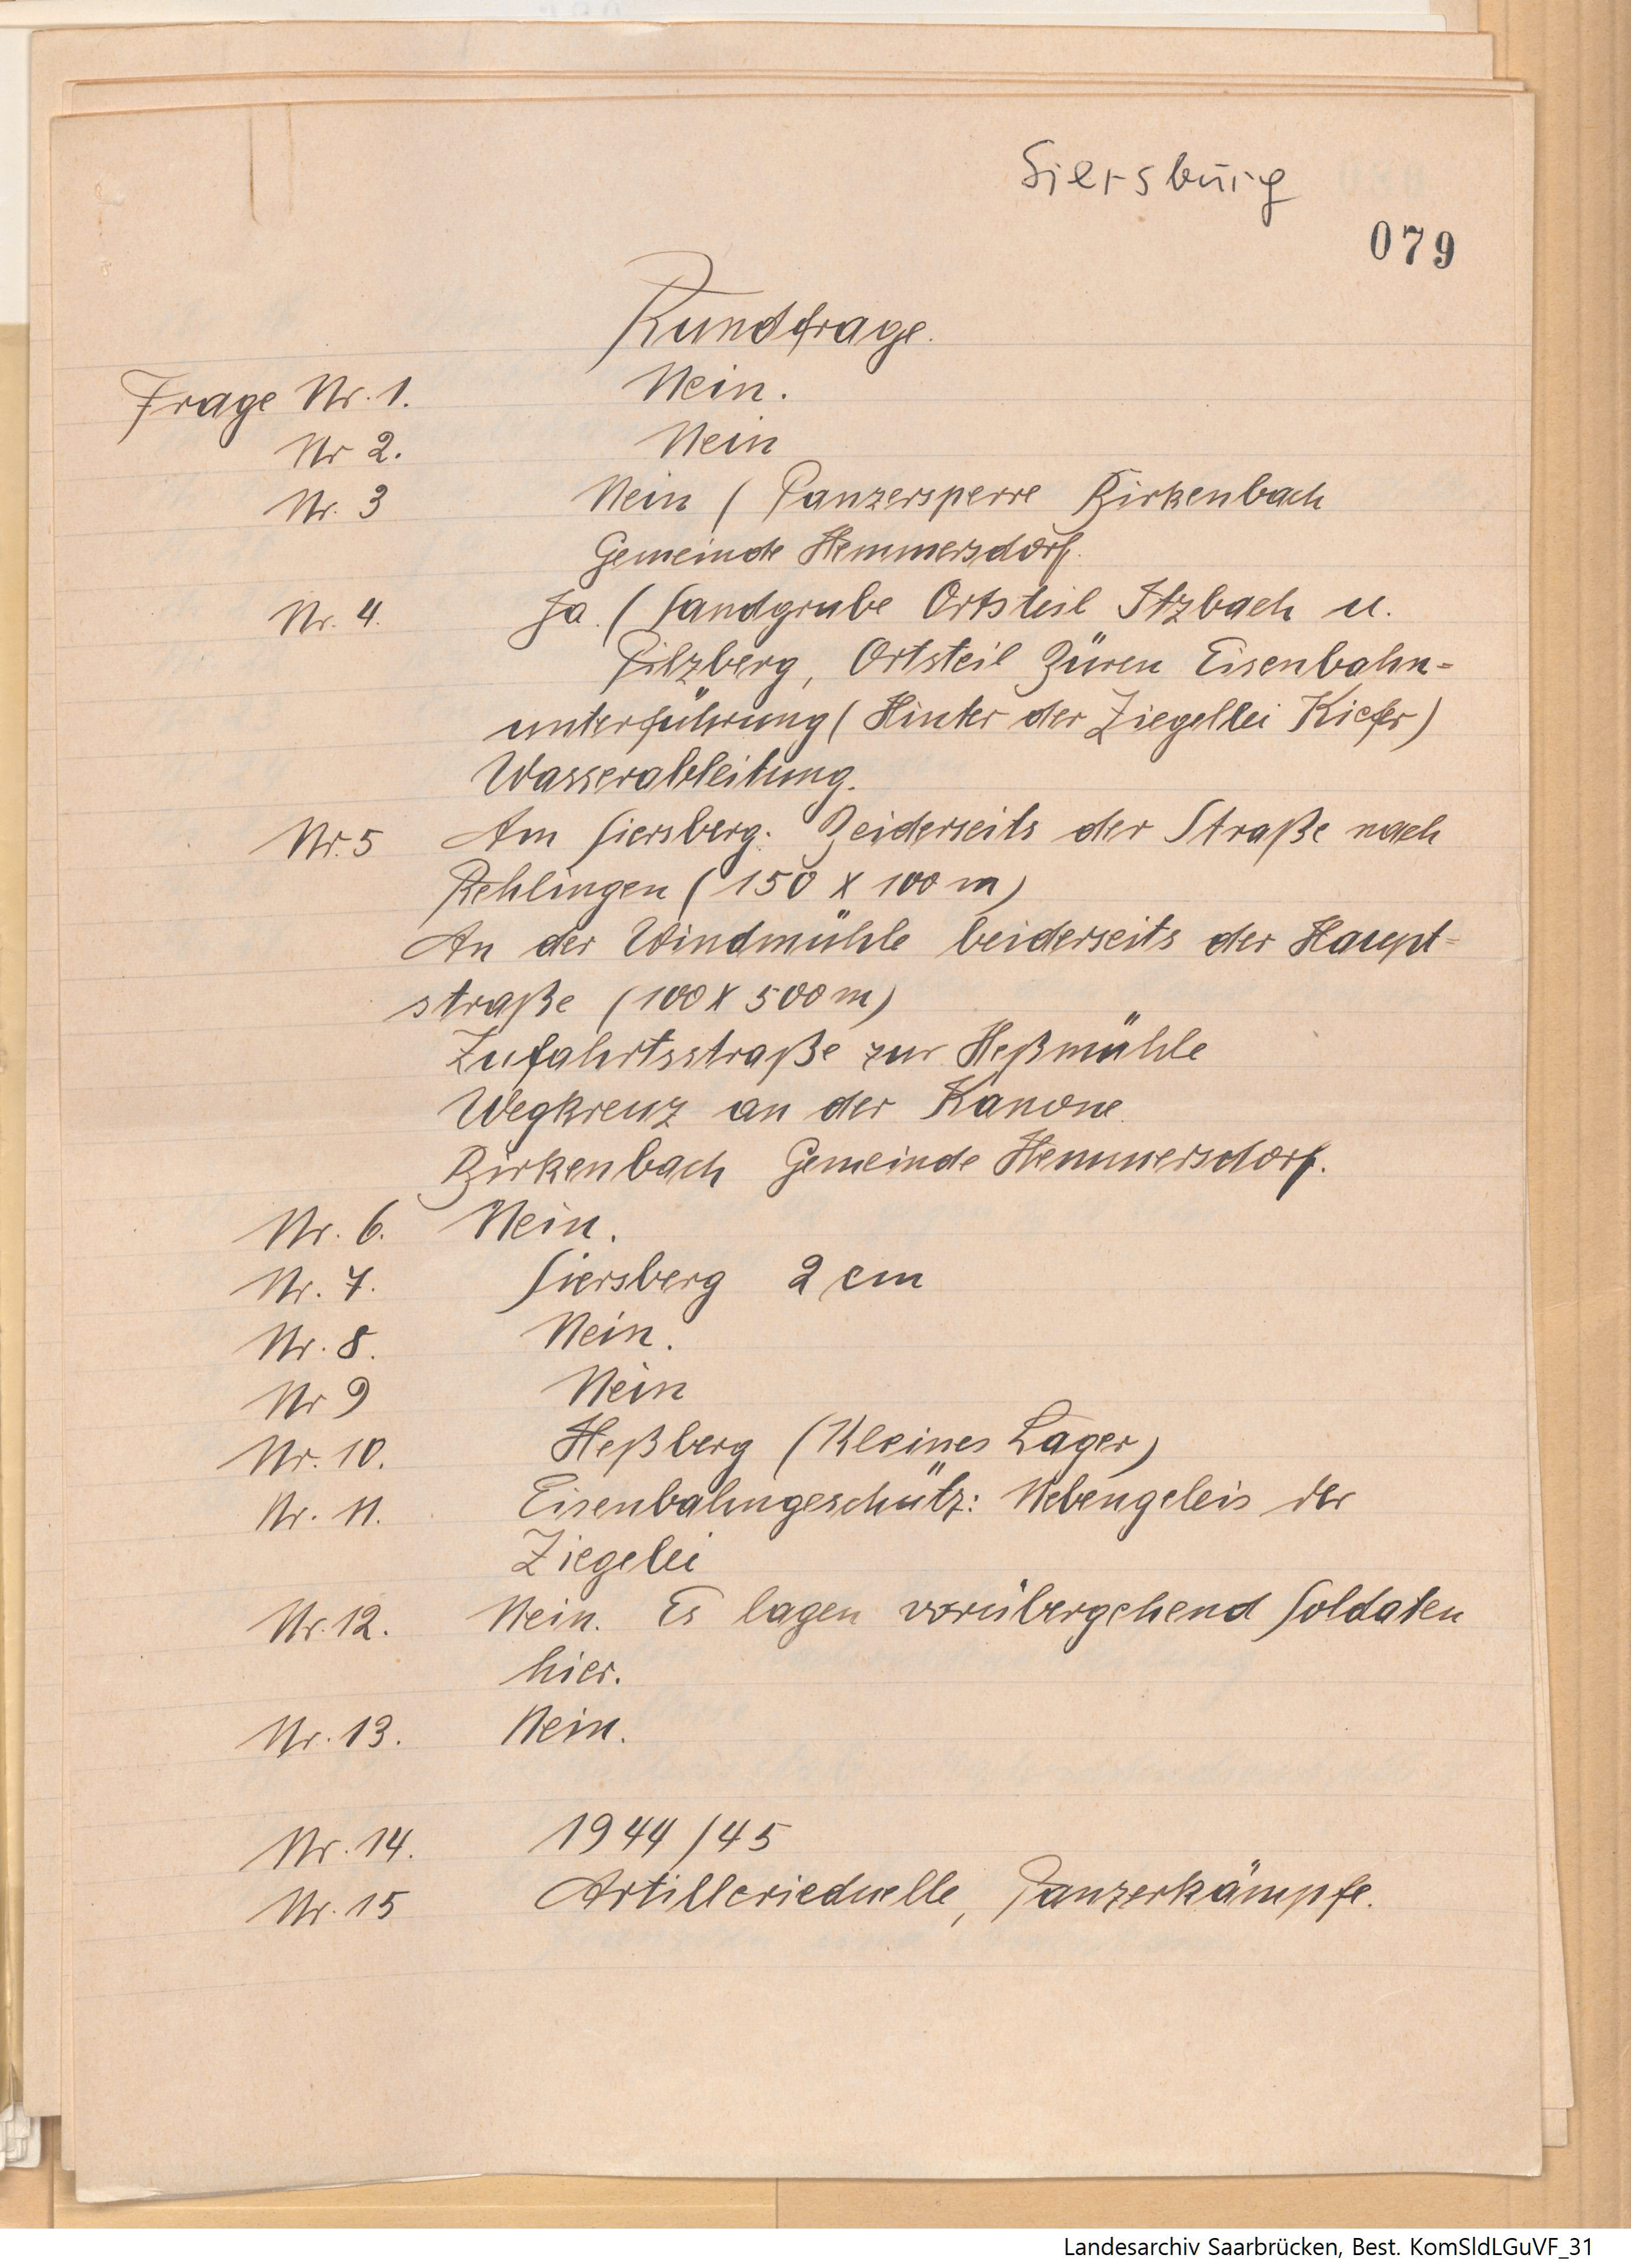 Siersburg
079
Rundfrage.
Frage Nr. 1. Nein.
Nr 2. Nein
Nr. 3 Nein ( Panzersperre Birkenbach
Gemeinde Hemmersdorf.
Nr. 4. Ja. ( Sandgrube Ortsteil Itzbach u.
Pilzberg, Ortsteil Büren Eisenbahn-
unterführung ( Hinter der Ziegellei Kiefer)
Wasserableitung.
Nr. 5 Am Siersberg. Beiderseits der Straße nach
Rehlingen ( 150 x 100 m)
An der Windmühle beiderseits der Haupt-
straße (100 x 500 m)
Zufahrtsstraße zur Heßmühle
Wegkreuz an der Kanone.
Birkenbach Gemeinde Hemmersdorf.
Nr. 6. Nein.
Nr. 7. Siersberg 2 cm
Nr. 8. Nein.
Nr 9 Nein
Nr. 10. Heßberg (Kleines Lager)
Nr. 11. Eisenbahngeschütz: Nebengeleis der
Ziegelei
Nr. 12. Nein. Es lagen vorübergehend Soldaten
hier.
Nr. 13. Nein.
Nr. 14. 1944/45
Nr. 15 Artillerieduelle, Panzerkämpfe.
Landesarchiv Saarbrücken, Best. KomSldLGuVF_31